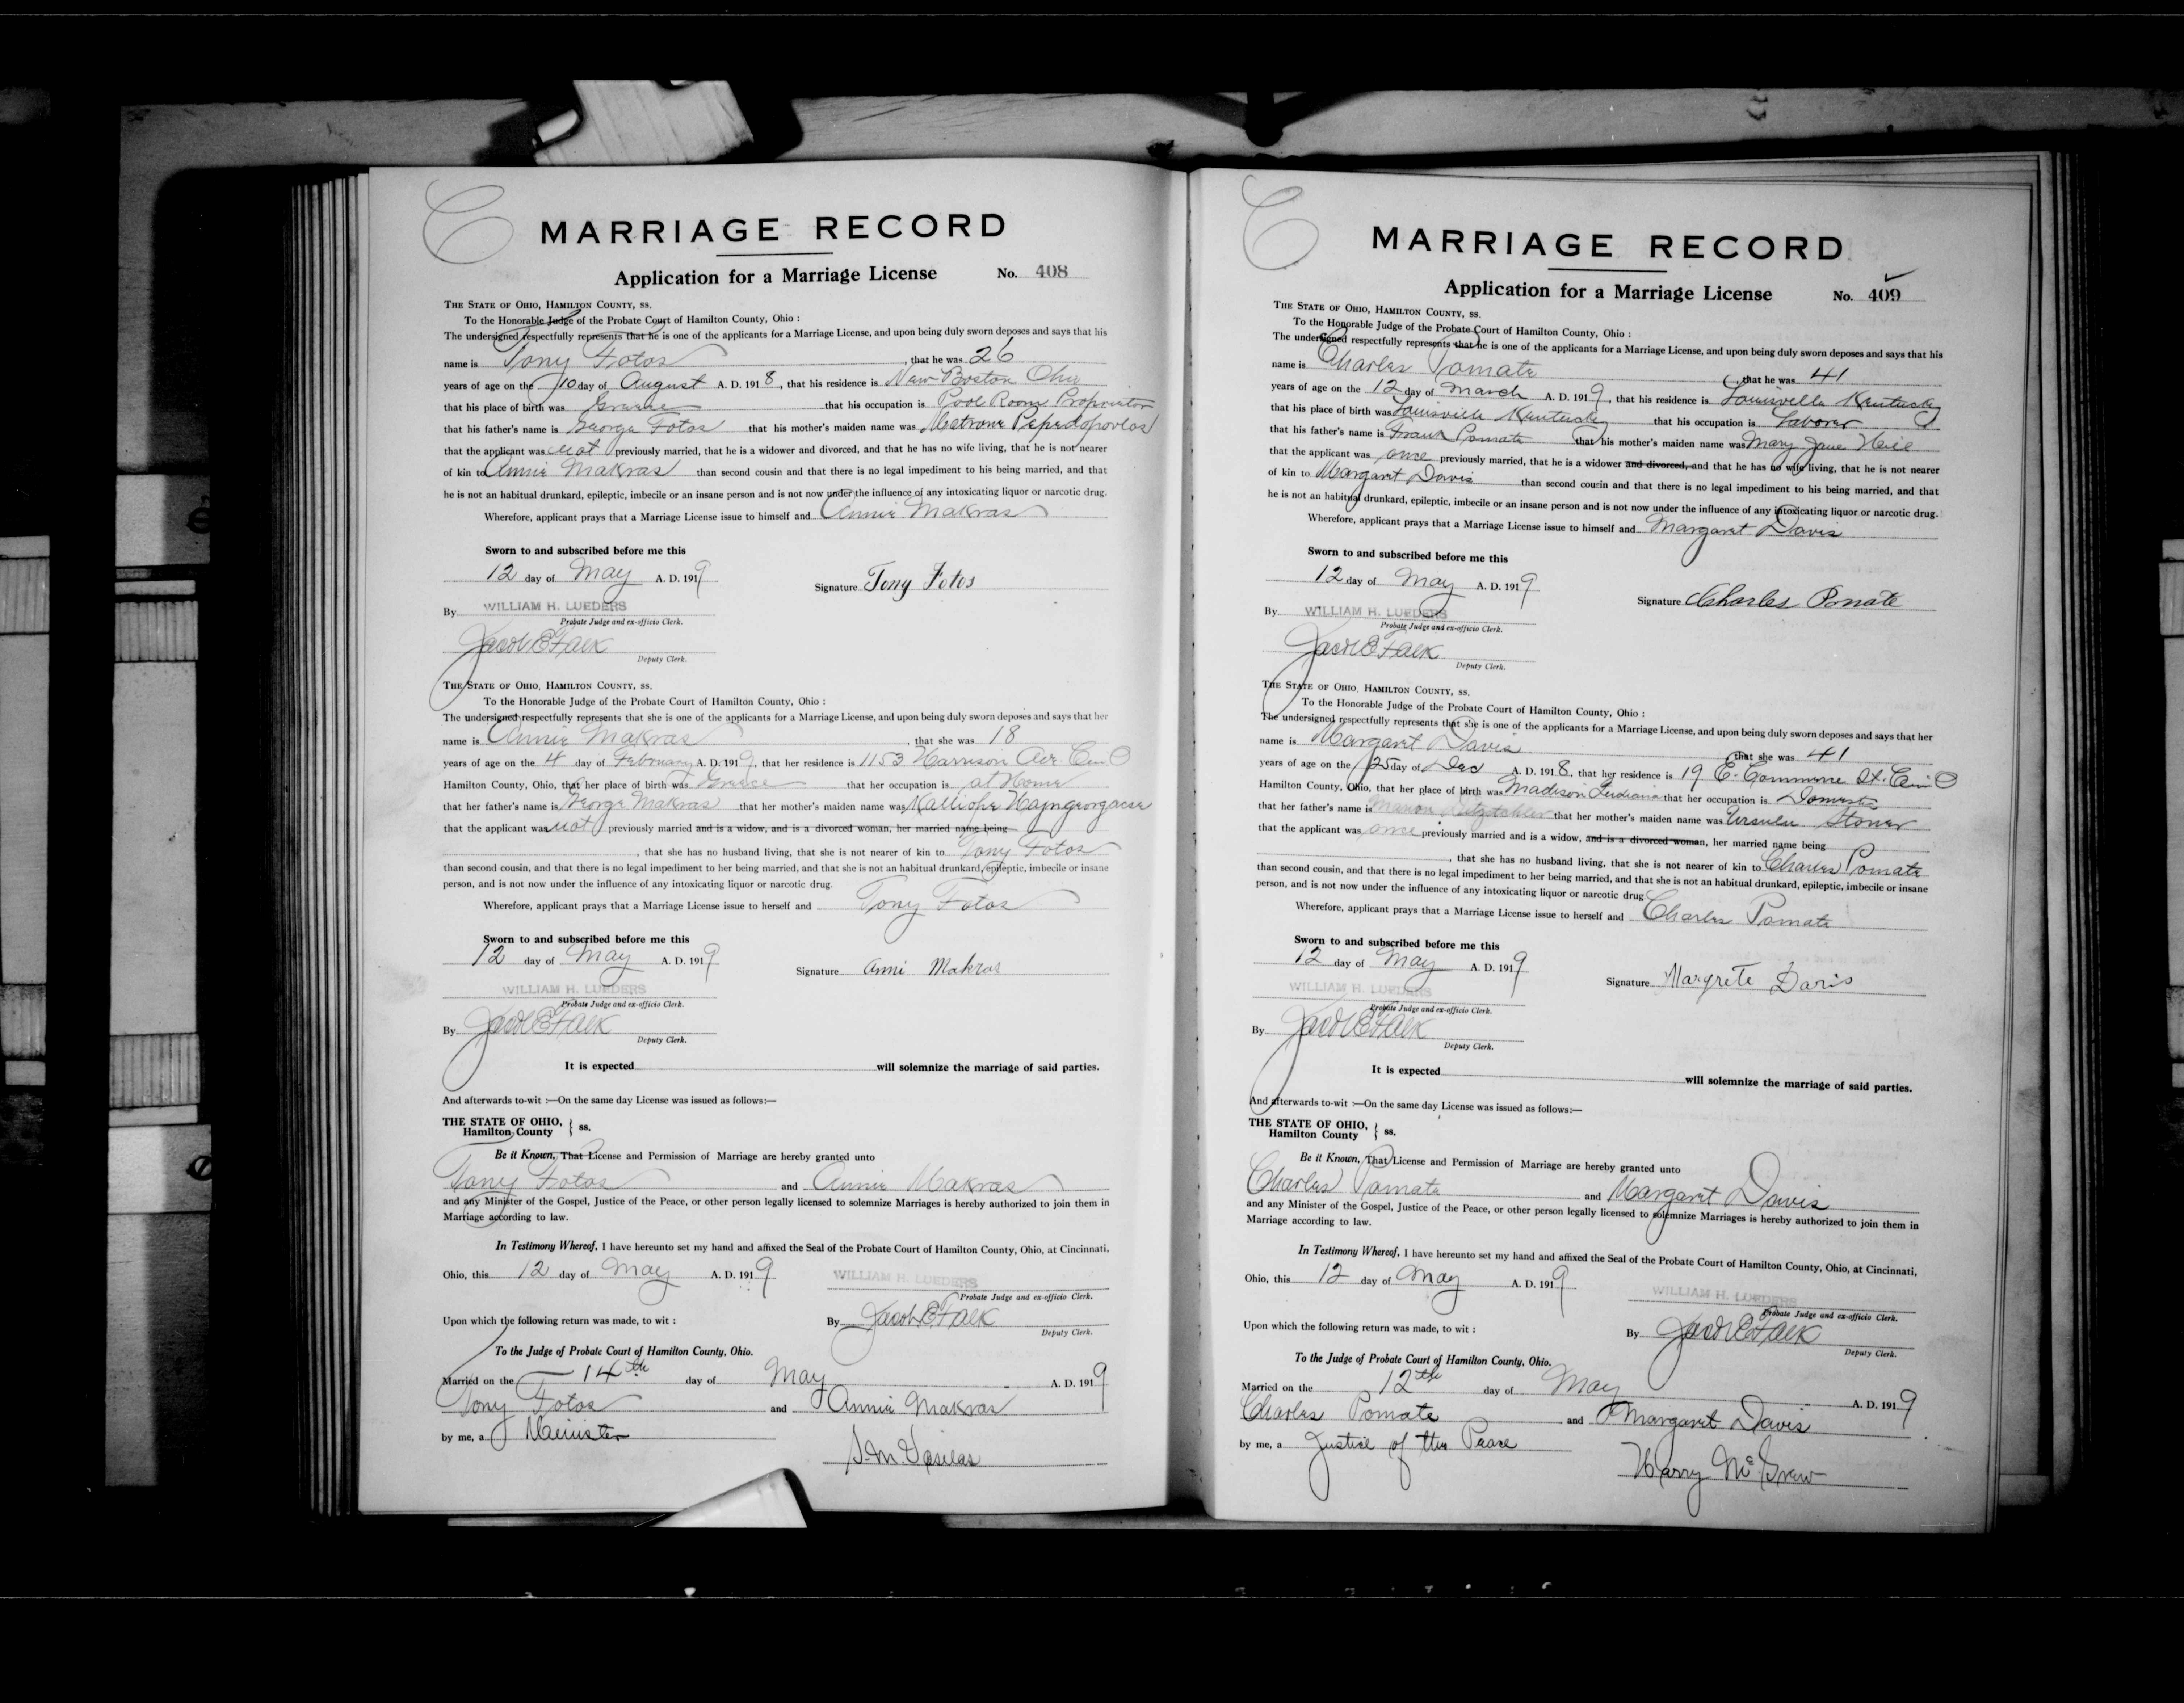 MARRIAGE RECORD
Application for a Marriage License No. 408
THE STATE OF OHIO, HAMILTON COUNTY, ss.
To the Honorable Judge of the Probate Court of Hamilton County, Ohio :
The undersigned respectfully represents that he is one of the applicants for a Marriage License, and upon being duly sworn deposes and says that his
name is Tony Fotos , that he was 26
years of age on the 10 day of August A. D. 1918, that his residence is New Boston Ohio
that his place of birth was Greece that his occupation is Pool Room Proprietor
that his father's name is George Fotos that his mother's maiden name was
that the applicant was not previously married, that he is a widower and divorced, and that he has no wife living, that he is not nearer
of kin to Annie Makras than second cousin and that there is no legal impediment to his being married, and that
he is not an habitual drunkard, epileptic, imbecile or an insane person and is not now under the influence of any intoxicating liquor or narcotic drug.
Wherefore, applicant prays that a Marriage License issue to himself and Annie Makras
Sworn to and subscribed before me this
12 day of May A. D. 1919
Signature Tony Fotos
By WILLIAM H. LUEDERS
Probate Judge and ex-officio Clerk.
Jacob E Falk
Deputy Clerk.
THE STATE OF OHIO, HAMILTON COUNTY, ss.
To the Honorable Judge of the Probate Court of Hamilton County, Ohio :
The undersigned respectfully represents that she is one of the applicants for a Marriage License, and upon being duly sworn deposes and says that her
name is Annie Makras , that she was 18
years of age on the 4 day of February A. D. 1919, that her residence is 1153 Harrison Ave. Cin O
Hamilton County, Ohio, that her place of birth was Greece that her occupation is at Home
that her father's name is George Makras that her mother's maiden name was Kalliope
that the applicant was not previously married and is a widow, and is a divorced woman, her married name being
, that she has no husband living, that she is not nearer of kin to Tony Fotos
than second cousin, and that there is no legal impediment to her being married, and that she is not an habitual drunkard, epileptic, imbecile or insane
person, and is not now under the influence of any intoxicating liquor or narcotic drug.
Wherefore, applicant prays that a Marriage License issue to herself and Tony Fotos
Sworn to and subscribed before me this
12 day of May A. D. 1919
Signature Anni Makras
WILLIAM H. LUEDERS
Probate Judge and ex-officio Clerk.
By Jacob E Falk
Deputy Clerk.
It is expected will solemnize the marriage of said parties.
And afterwards to-wit :—On the same day License was issued as follows:—
THE STATE OF OHIO,
Hamilton County } ss.
Be it Known, That License and Permission of Marriage are hereby granted unto
Tony Fotos and Annie Makras
and any Minister of the Gospel, Justice of the Peace, or other person legally licensed to solemnize Marriages is hereby authorized to join them in
Marriage according to law.
In Testimony Whereof, I have hereunto set my hand and affixed the Seal of the Probate Court of Hamilton County, Ohio, at Cincinnati,
Ohio, this 12 day of May A. D. 1919
WILLIAM H. LUEDERS
Probate Judge and ex-officio Clerk.
Upon which the following return was made, to wit : By Jacob E Falk
Deputy Clerk.
To the Judge of Probate Court of Hamilton County, Ohio.
Married on the 14th day of May A. D. 1919
Tony Fotos and Annie Makras
by me, a Minister
MARRIAGE RECORD
Application for a Marriage License No. 409
THE STATE OF OHIO, HAMILTON COUNTY, ss.
To the Honorable Judge of the Probate Court of Hamilton County, Ohio :
The undersigned respectfully represents that he is one of the applicants for a Marriage License, and upon being duly sworn deposes and says that his
name is Charles Pomate , that he was 41
years of age on the 12 day of March A. D. 1919, that his residence is Louisville Kentucky
that his place of birth was Louisville Kentucky that his occupation is Laborer
that his father's name is Frank Pomate that his mother's maiden name was Mary Jane
that the applicant was once previously married, that he is a widower and divorced, and that he has no wife living, that he is not nearer
of kin to Margaret Davis than second cousin and that there is no legal impediment to his being married, and that
he is not an habitual drunkard, epileptic, imbecile or an insane person and is not now under the influence of any intoxicating liquor or narcotic drug.
Wherefore, applicant prays that a Marriage License issue to himself and Margaret Davis
Sworn to and subscribed before me this
12 day of May A. D. 1919
Signature Charles Pomate
By WILLIAM H. LUEDERS
Probate Judge and ex-officio Clerk.
Jacob E Falk
Deputy Clerk.
THE STATE OF OHIO, HAMILTON COUNTY, ss.
To the Honorable Judge of the Probate Court of Hamilton County, Ohio :
The undersigned respectfully represents that she is one of the applicants for a Marriage License, and upon being duly sworn deposes and says that her
name is Margaret Davis that she was 41
years of age on the 25 day of Dec A. D. 1918, that her residence is 19 E. Commerce St. Cin O
Hamilton County, Ohio, that her place of birth was Madison Indiana that her occupation is Domestic
that her father's name is Marion that her mother's maiden name was Ursula Stoner
that the applicant was once previously married and is a widow, and is a divorced woman, her married name being
, that she has no husband living, that she is not nearer of kin to Charles Pomate
than second cousin, and that there is no legal impediment to her being married, and that she is not an habitual drunkard, epileptic, imbecile or insane
person, and is not now under the influence of any intoxicating liquor or narcotic drug.
Wherefore, applicant prays that a Marriage License issue to herself and Charles Pomate
Sworn to and subscribed before me this
12 day of May A. D. 1919
Signature Margrete Davis
WILLIAM H. LUEDERS
Probate Judge and ex-officio Clerk.
By Jacob E Falk
Deputy Clerk.
It is expected will solemnize the marriage of said parties.
And afterwards to-wit :—On the same day License was issued as follows:—
THE STATE OF OHIO,
Hamilton County } ss.
Be it Known, That License and Permission of Marriage are hereby granted unto
Charles Pomate and Margaret Davis
and any Minister of the Gospel, Justice of the Peace, or other person legally licensed to solemnize Marriages is hereby authorized to join them in
Marriage according to law.
In Testimony Whereof, I have hereunto set my hand and affixed the Seal of the Probate Court of Hamilton County, Ohio, at Cincinnati,
Ohio, this 12 day of May A. D. 1919
WILLIAM H. LUEDERS
Probate Judge and ex-officio Clerk.
Upon which the following return was made, to wit : By Jacob E Falk
Deputy Clerk.
To the Judge of Probate Court of Hamilton County, Ohio.
Married on the 12th day of May A. D. 1919
Charles Pomate and Margaret Davis
by me, a Justice of the Peace
Harry McGrew